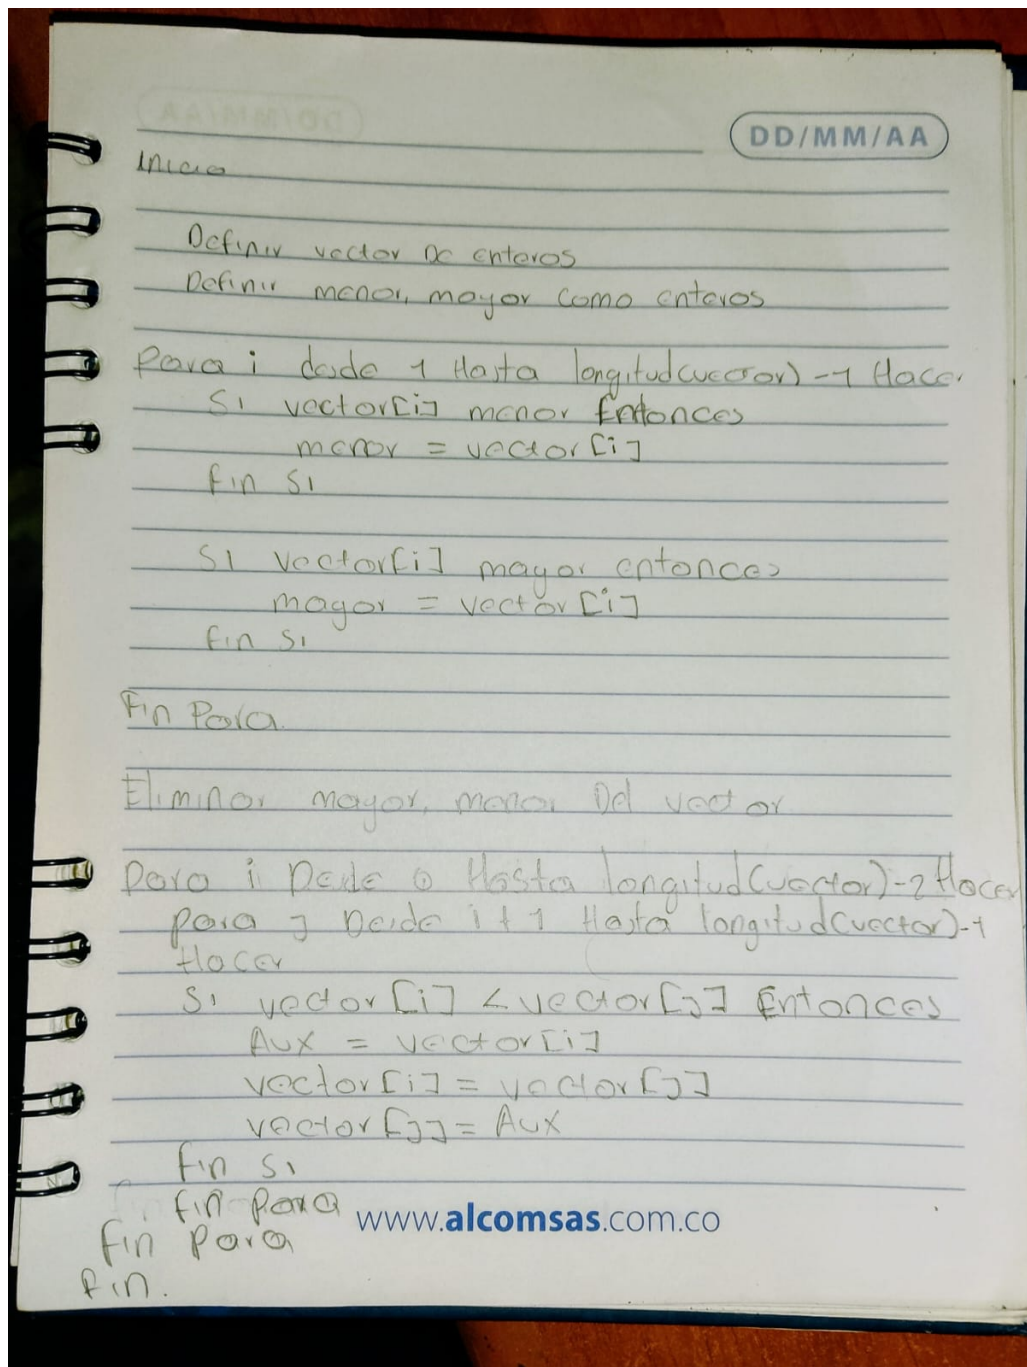 DD/MM/AA
Inicio
Definir vector De enteros
Definir menor, mayor como enteros
Para i desde 1 Hasta longitud(vector)-1 Hacer
Si vector[i] menor Entonces
menor = vector[i]
Fin Si
Si vector[i] mayor entonces
mayor = vector[i]
Fin Si
Fin Para
Eliminar mayor, menor Del vector
Para i Desde 0 Hasta longitud(vector)-2 Hacer
para j Desde i+1 Hasta longitud(vector)-1
Hacer
Si vector[i] < vector[j] Entonces
Aux = vector[i]
vector[i] = vector[j]
vector[j] = Aux
Fin Si
Fin Para
www.alcomsas.com.co
Fin Para
Fin.